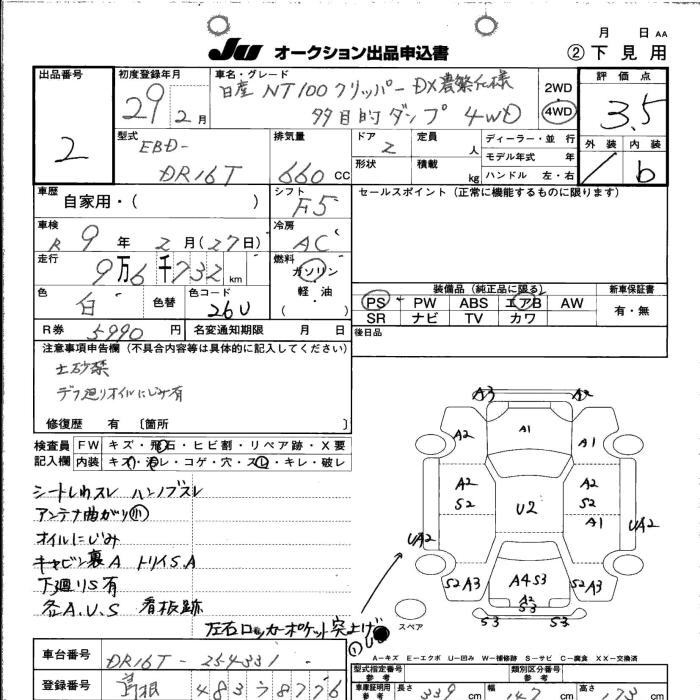 月 日 AA
JU オークション出品申込書 ②下見用
出品番号 初度登録年月 車名・グレード 評価点
2
29年 2月
日産 NT100クリッパー DX農繁仕様
多目的ダンプ 4WD
2WD
4WD
3.5
外装 内装
/ b
型式 EBD-
DR16T
排気量 660 CC
ドア 2
定員 人
形状
積載 kg
ディーラー・並 行
モデル年式 年
ハンドル 左・右
車歴 自家用・( )
シフト F5
セールスポイント(正常に機能するものに限ります)
車検 R 9年 2月(27日)
冷房 AC
走行 9万6千732 km
燃料 ガソリン
軽・油
( )
色 白 色替 色コード 26U
R券 5990円 名変通知期限 月 日
装備品(純正品に限る) 新車保証書
PS PW ABS エアB AW 有・無
SR ナビ TV カワ
後日品
注意事項申告欄(不具合内容等は具体的に記入してください)
土砂禁
デフ廻りオイルにじみ有
修復歴 有 〔箇所 〕
検査員 FW キズ・飛石・ヒビ割・リペア跡・X要
記入欄 内装 キズ・汚レ・コゲ・穴・スレ・キレ・破レ
シートしわスレ ハンノブスレ
アンテナ曲がり小
オイルにじみ
キャビン裏A トリイS.A
下廻りS有
各A.U.S 看板跡
左右ロッカーポケット突上げ
①U
A3 A2
A2 A1 A1
A2 S2 U2 A2 S2
A1
UA2 UA2
S2 A3 A4 S3 S2 A3
A2
S3
S3 S3
スペア
A-キズ E-エクボ U-凹み W-補修跡 S-サビ C-腐食 XX-交換済
車台番号 DR16T-254331
型式指定番号 参考
類別区分番号 参考
登録番号 島根 483 8776
車庫証明用 参考 長さ 339 cm 幅 147 cm 高さ 173 cm